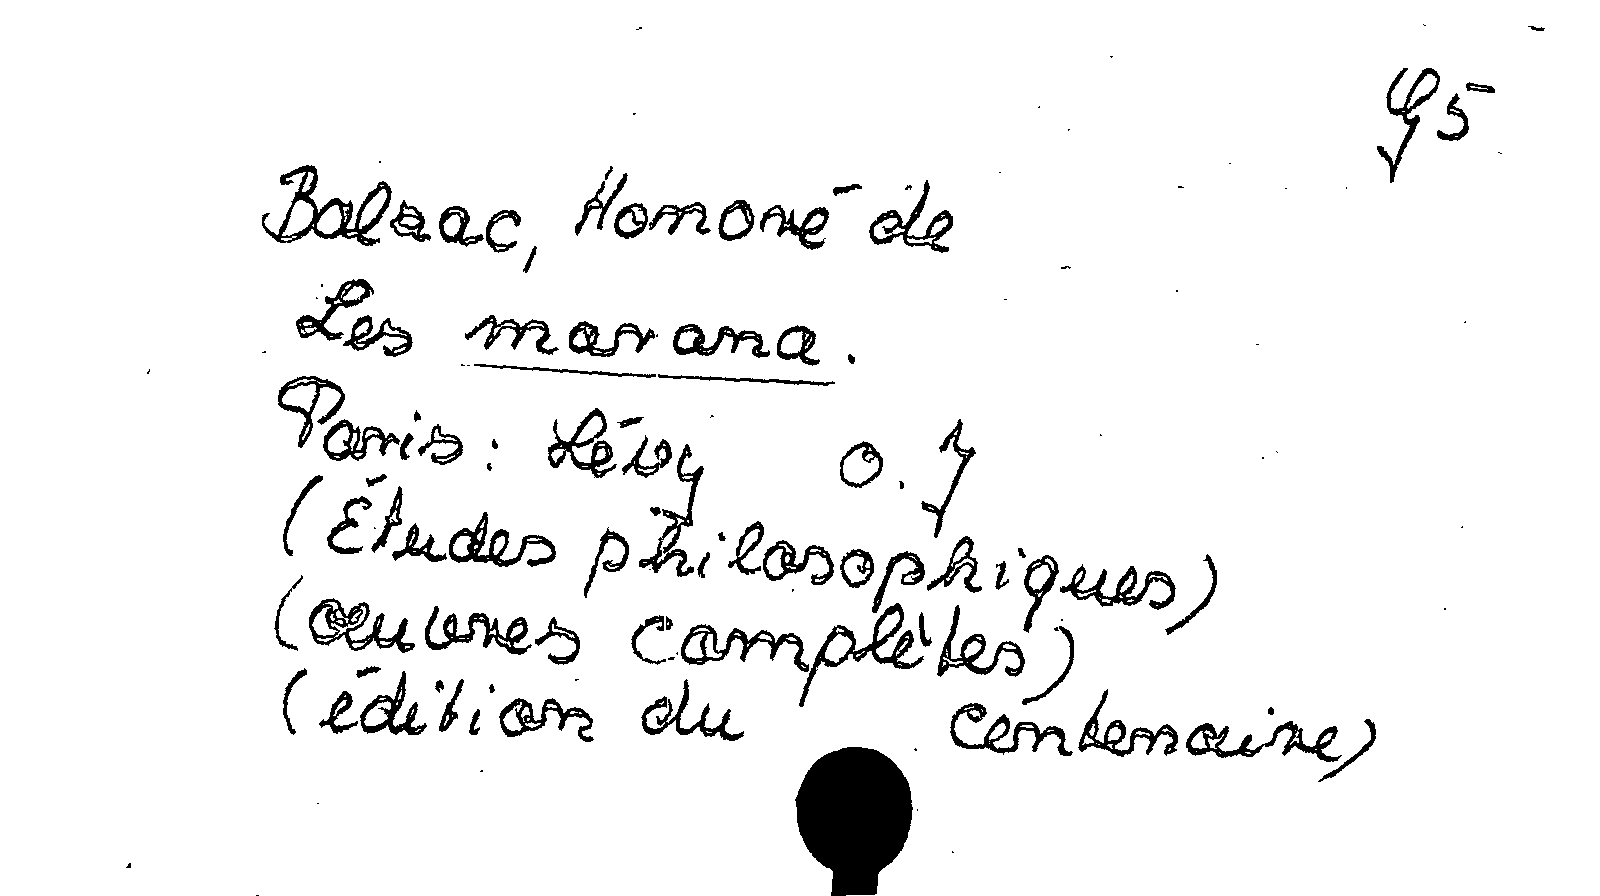 G5
Balzac, Honoré de
Les marana.
Paris: Lévy o. J
(Études philosophiques)
(œuvres complètes)
(édition du centenaire)